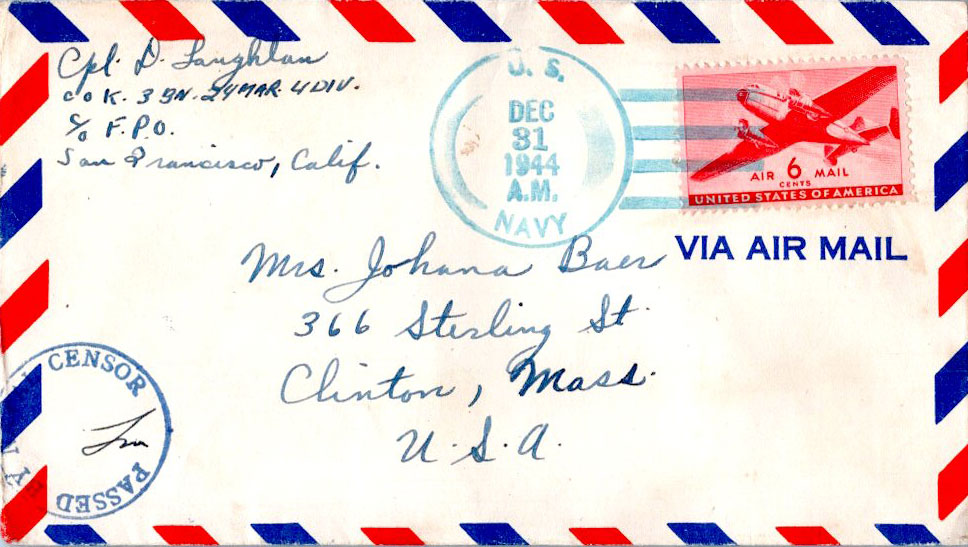 Cpl. D. Laughlan
CO K. 3 BN. 24 MAR. 4 DIV.
c/o F.P.O.
San Francisco, Calif.
U. S.
DEC
31
1944
A.M.
NAVY
AIR 6 MAIL
CENTS
UNITED STATES OF AMERICA
VIA AIR MAIL
Mrs. Johana Baer
366 Sterling St.
Clinton, Mass.
U.S.A.
CENSOR
PASSED